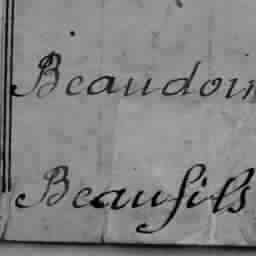 Beaudoin
Beaufils